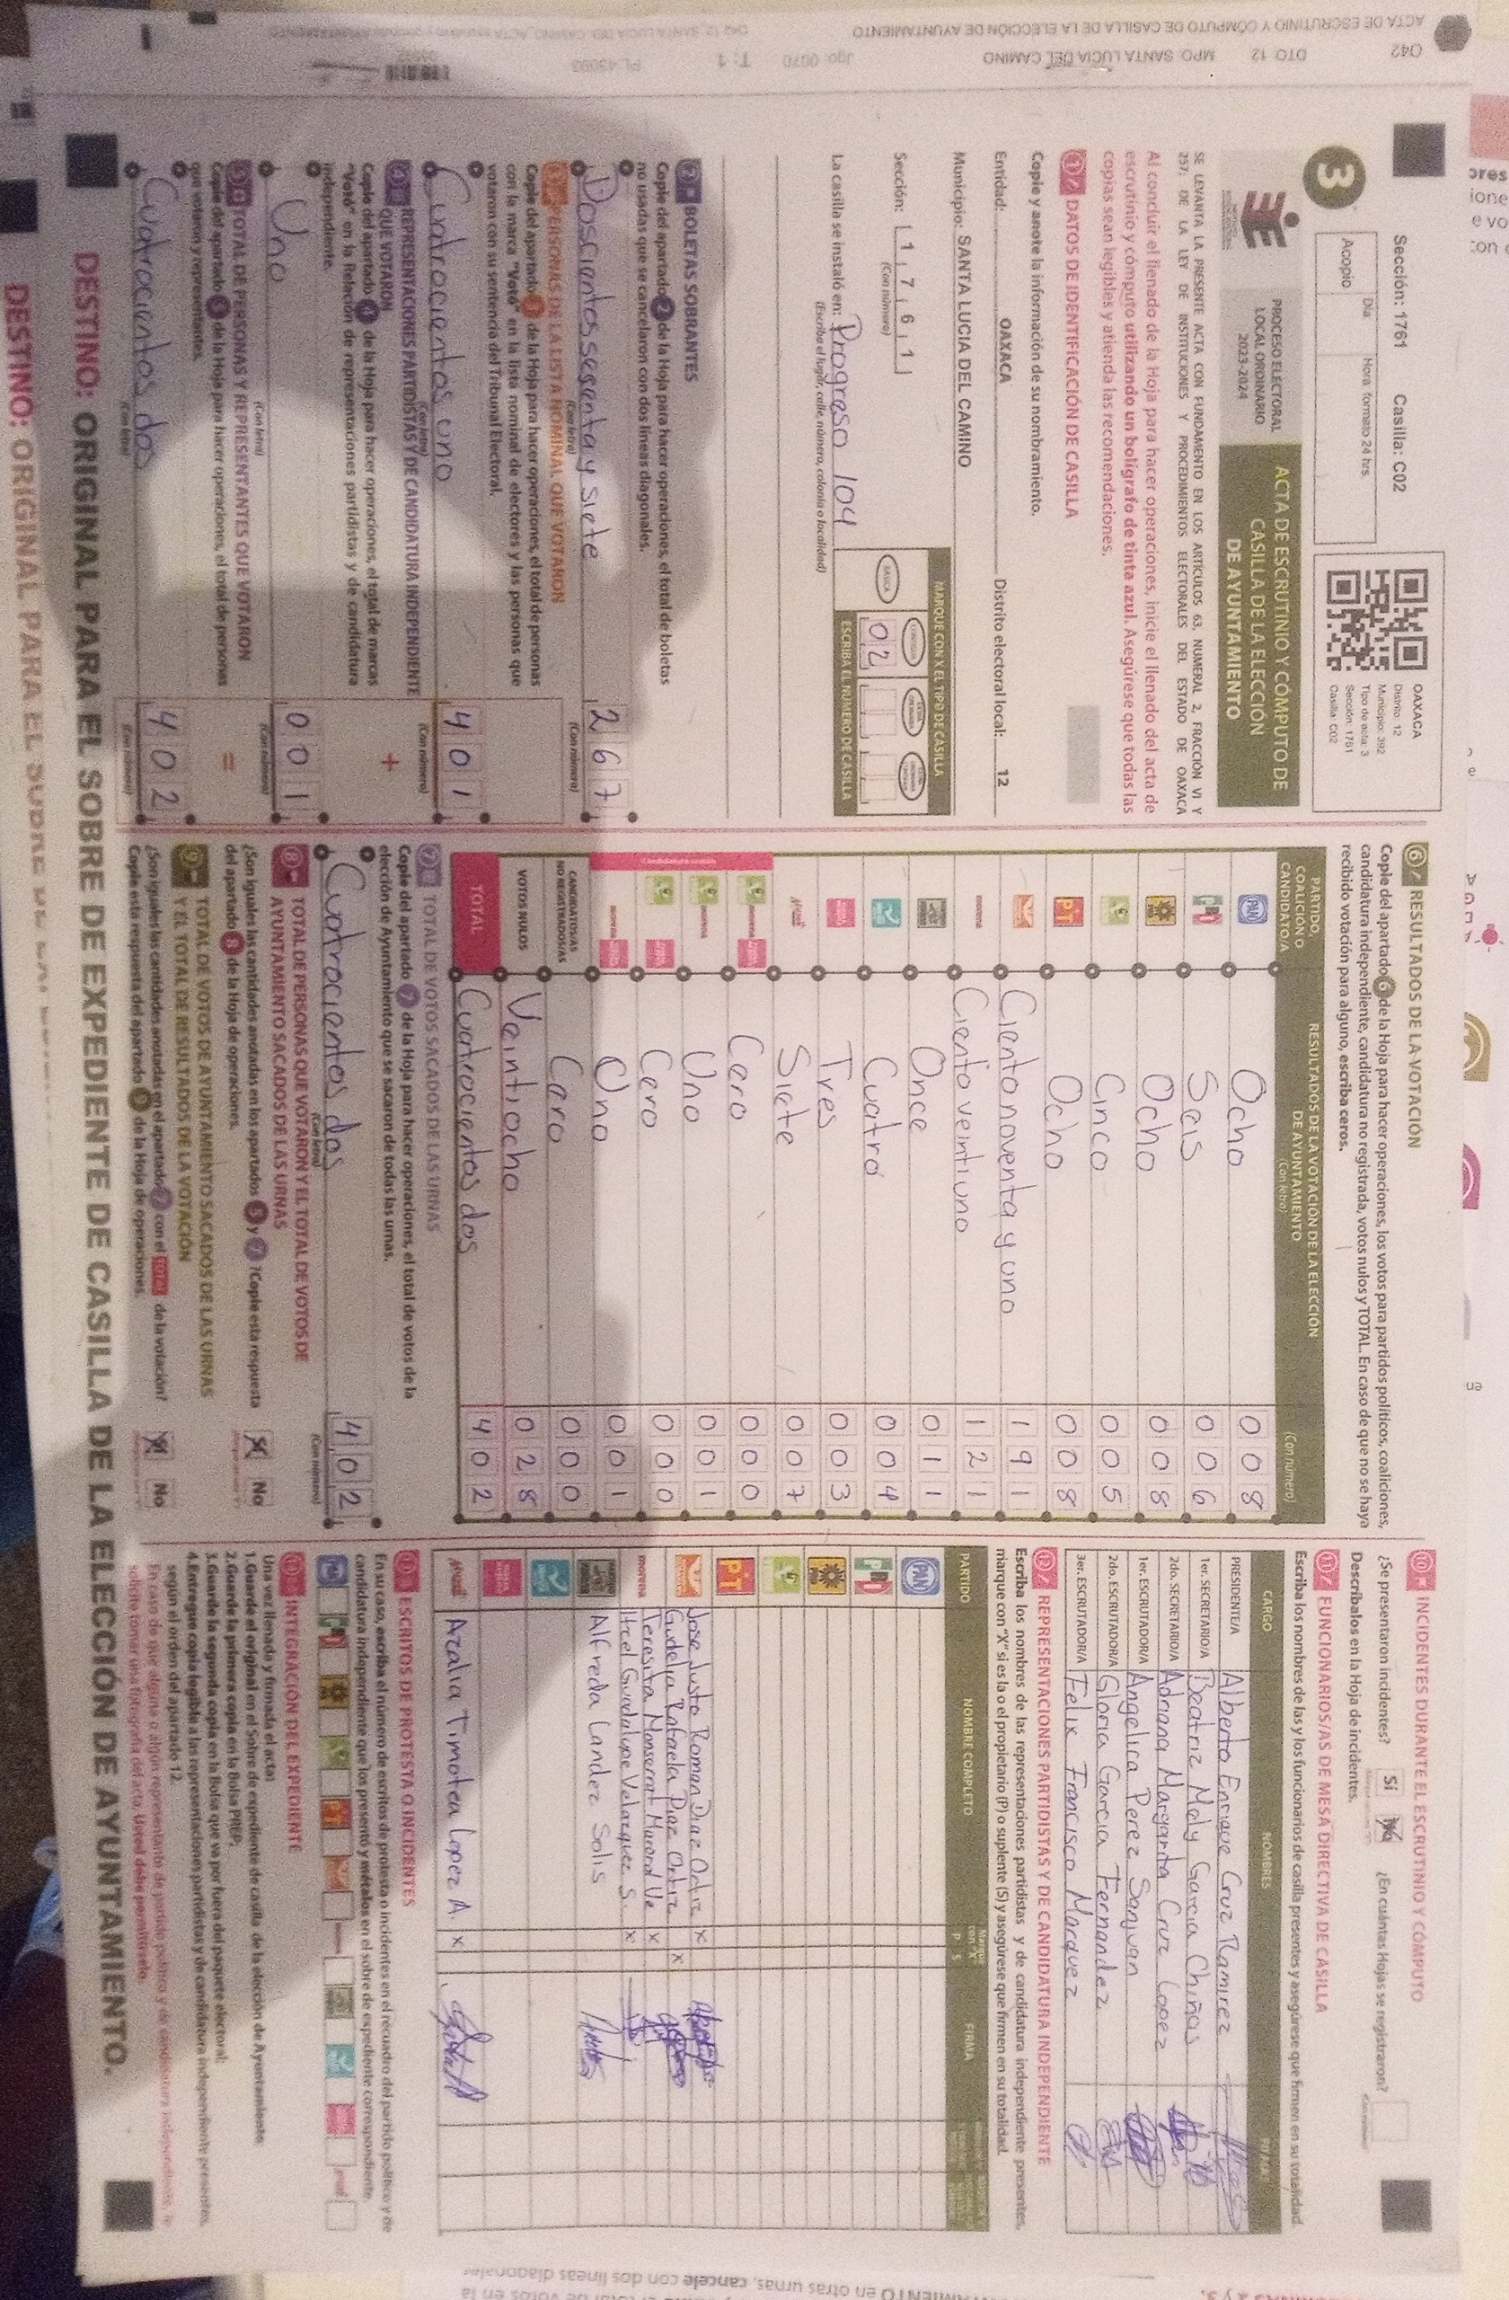 3
Sección: 1761 Casilla: C02
Día:
Hora: formato 24 hrs.
Acopio
OAXACA
Distrito: 12
Municipio: 392
Tipo de acta: 3
Sección: 1761
Casilla: C02
PROCESO ELECTORAL
LOCAL ORDINARIO
2023-2024
ACTA DE ESCRUTINIO Y CÓMPUTO DE
CASILLA DE LA ELECCIÓN
DE AYUNTAMIENTO
SE LEVANTA LA PRESENTE ACTA CON FUNDAMENTO EN LOS ARTÍCULOS 63, NUMERAL 2, FRACCIÓN VI Y
257; DE LA LEY DE INSTITUCIONES Y PROCEDIMIENTOS ELECTORALES DEL ESTADO DE OAXACA
Al concluir el llenado de la Hoja para hacer operaciones, inicie el llenado del acta de
escrutinio y cómputo utilizando un bolígrafo de tinta azul. Asegúrese que todas las
copias sean legibles y atienda las recomendaciones.
1 DATOS DE IDENTIFICACIÓN DE CASILLA
Copie y anote la información de su nombramiento.
Entidad: OAXACA Distrito electoral local: 12
Municipio: SANTA LUCIA DEL CAMINO
Sección: 1 7 6 1
(Con número)
MARQUE CON X EL TIPO DE CASILLA
BÁSICA
02
ESCRIBA EL NÚMERO DE CASILLA
La casilla se instaló en: Progreso 104
(Escriba el lugar, calle, número, colonia o localidad)
2 BOLETAS SOBRANTES
Copie del apartado 2 de la Hoja para hacer operaciones, el total de boletas
no usadas que se cancelaron con dos líneas diagonales.
Doscientos sesenta y siete 267
(Con letra) (Con número)
3 PERSONAS DE LA LISTA NOMINAL QUE VOTARON
Copie del apartado 3 de la Hoja para hacer operaciones, el total de personas
con la marca "Votó" en la lista nominal de electores y las personas que
votaron con su sentencia del Tribunal Electoral.
Cuatrocientos uno 401
(Con letra) (Con número)
4 REPRESENTACIONES PARTIDISTAS Y DE CANDIDATURA INDEPENDIENTE
QUE VOTARON
Copie del apartado 4 de la Hoja para hacer operaciones, el total de marcas
"Votó" en la Relación de representaciones partidistas y de candidatura
independiente.
+
Uno 001
(Con letra) (Con número)
5 TOTAL DE PERSONAS Y REPRESENTANTES QUE VOTARON
Copie del apartado 5 de la Hoja para hacer operaciones, el total de personas
que votaron y representantes.
=
Cuatrocientos dos 402
(Con letra) (Con número)
6 RESULTADOS DE LA VOTACIÓN
Copie del apartado 6 de la Hoja para hacer operaciones, los votos para partidos políticos, coaliciones,
candidatura independiente, candidatura no registrada, votos nulos y TOTAL. En caso de que no se haya
recibido votación para alguno, escriba ceros.
PARTIDO,
COALICIÓN O
CANDIDATO/A
RESULTADOS DE LA VOTACIÓN DE LA ELECCIÓN
DE AYUNTAMIENTO
(Con letra) (Con número)
PAN Ocho 008
PRI Seis 006
Ocho 008
Cinco 005
PT Ocho 008
Ciento noventa y uno 191
morena Ciento veintiuno 121
Once 011
Cuatro 004
Tres 003
Siete 007
Cero 000
Uno 001
Cero 000
Uno 001
CANDIDATOS/AS
NO REGISTRADOS/AS Cero 000
VOTOS NULOS Veintiocho 028
TOTAL Cuatrocientos dos 402
7 TOTAL DE VOTOS SACADOS DE LAS URNAS
Copie del apartado 7 de la Hoja para hacer operaciones, el total de votos de la
elección de Ayuntamiento que se sacaron de todas las urnas.
Cuatrocientos dos 402
(Con letra) (Con número)
8 TOTAL DE PERSONAS QUE VOTARON Y EL TOTAL DE VOTOS DE
AYUNTAMIENTO SACADOS DE LAS URNAS
¿Son iguales las cantidades anotadas en los apartados 5 y 7? Copie esta respuesta
del apartado 8 de la Hoja de operaciones.
X No
9 TOTAL DE VOTOS DE AYUNTAMIENTO SACADOS DE LAS URNAS
Y EL TOTAL DE RESULTADOS DE LA VOTACIÓN
¿Son iguales las cantidades anotadas en el apartado 7 con el TOTAL de la votación?
Copie esta respuesta del apartado 9 de la Hoja de operaciones.
X No
10 INCIDENTES DURANTE EL ESCRUTINIO Y CÓMPUTO
¿Se presentaron incidentes? Sí No ¿En cuántas Hojas se registraron?
Descríbalos en la Hoja de incidentes.
11 FUNCIONARIOS/AS DE MESA DIRECTIVA DE CASILLA
Escriba los nombres de las y los funcionarios de casilla presentes y asegúrese que firmen en su totalidad.
CARGO NOMBRES FIRMA
PRESIDENTE/A Alberto Enrique Cruz Ramirez
1er. SECRETARIO/A Beatriz Maly Garcia Chiñas
2do. SECRETARIO/A Adriana Margarita Cruz Lopez
1er. ESCRUTADOR/A Angelica Perez Sanjuan
2do. ESCRUTADOR/A Gloria Garcia Fernandez
3er. ESCRUTADOR/A Felix Francisco Marquez
12 REPRESENTACIONES PARTIDISTAS Y DE CANDIDATURA INDEPENDIENTE
Escriba los nombres de las representaciones partidistas y de candidatura independiente presentes,
marque con "X" si es la o el propietario (P) o suplente (S) y asegúrese que firmen en su totalidad.
PARTIDO NOMBRE COMPLETO P S FIRMA
PAN
PRI
PT
Jose Justo Roman Diaz Ortiz X
Gudelia Rafaela Diaz Ortiz X
morena Teresita Monserrat X
Itzel Guadalupe Velazquez S. X
Alfreda Candez Solis
Azalia Timotea Lopez A. X
13 ESCRITOS DE PROTESTA O INCIDENTES
En su caso, escriba el número de escritos de protesta o incidentes en el recuadro del partido político y de
candidatura independiente que los presentó y métalos en el sobre de expediente correspondiente.
14 INTEGRACIÓN DEL EXPEDIENTE
Una vez llenada y firmada el acta:
1.Guarde el original en el Sobre de expediente de casilla de la elección de Ayuntamiento
2.Guarde la primera copia en la Bolsa PREP;
3.Guarde la segunda copia en la Bolsa que va por fuera del paquete electoral;
4.Entregue copia legible a las representaciones partidistas y de candidatura independiente presentes,
según el orden del apartado 12.
En caso de que alguna o algún representante de partido político y de candidatura independiente, le
solicite tomar una fotografía del acta, Usted debe permitírselo.
DESTINO: ORIGINAL PARA EL SOBRE DE EXPEDIENTE DE CASILLA DE LA ELECCIÓN DE AYUNTAMIENTO.
DESTINO: ORIGINAL PARA EL SOBRE DE
O42 DTO 12 MPO SANTA LUCIA DEL CAMINO
ACTA DE ESCRUTINIO Y CÓMPUTO DE CASILLA DE LA ELECCIÓN DE AYUNTAMIENTO